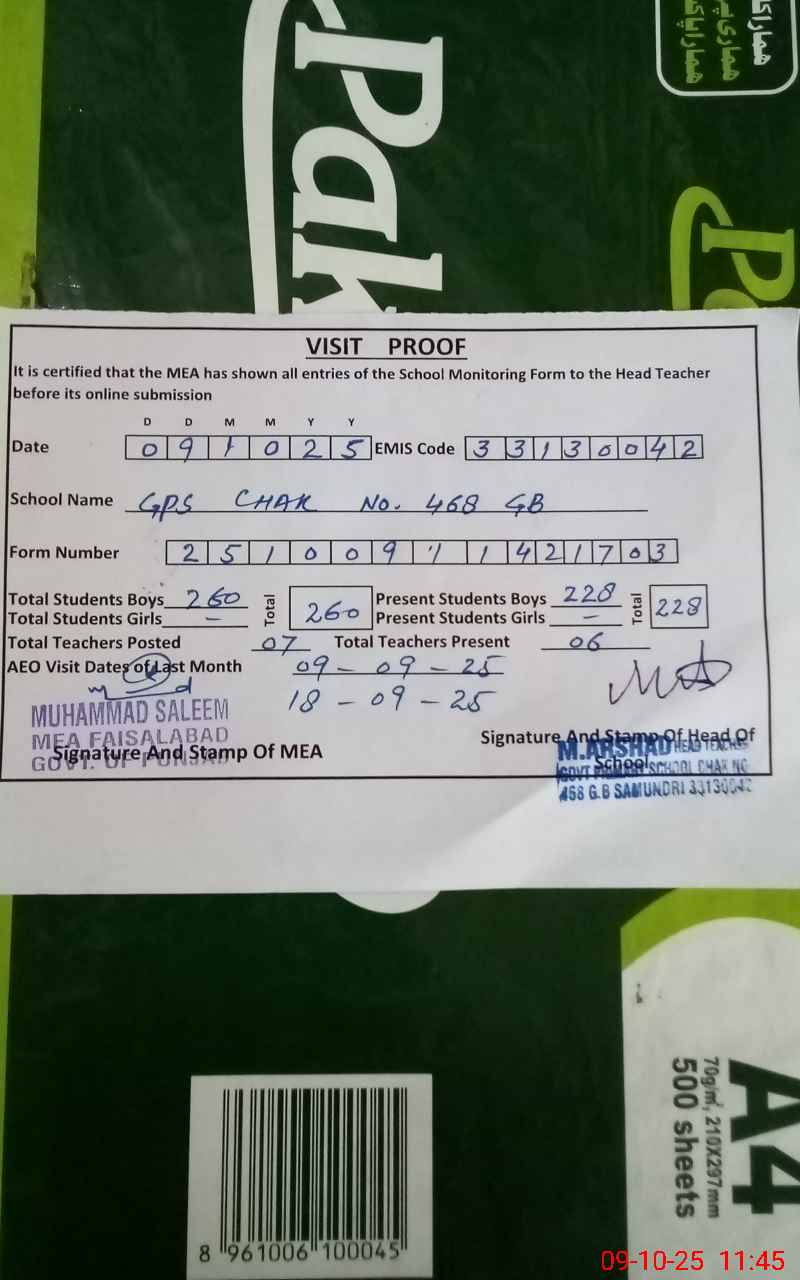 Pak
ہماری
Pa
VISIT PROOF
It is certified that the MEA has shown all entries of the School Monitoring Form to the Head Teacher
before its online submission
D D M M Y Y
Date 0 9 1 0 2 5 EMIS Code 3 3 1 3 0 0 4 2
School Name GPS CHAK No. 468 GB
Form Number 2 5 1 0 0 9 1 1 4 2 1 7 0 3
Total Students Boys 260 Total 260 Present Students Boys 228 Total 228
Total Students Girls - Present Students Girls -
Total Teachers Posted 07 Total Teachers Present 06
AEO Visit Dates of Last Month 09 - 09 - 25
18 - 09 - 25
MUHAMMAD SALEEM
MEA FAISALABAD
GOVT. OF PUNJAB
Signature And Stamp Of MEA
Signature And Stamp Of Head Of
School
M.ARSHAD HEAD TEACHER
GOVT PRIMARY SCHOOL CHAK NO
468 G.B SAMUNDRI 33130042
A4
70g/m², 210X297mm
500 sheets
8 961006 100045
09-10-25 11:45